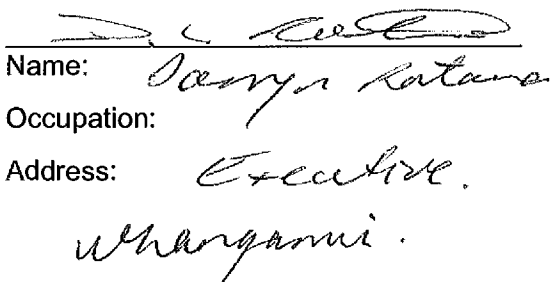 Name: Ratana
Occupation:
Address: Executive.
Whanganui.